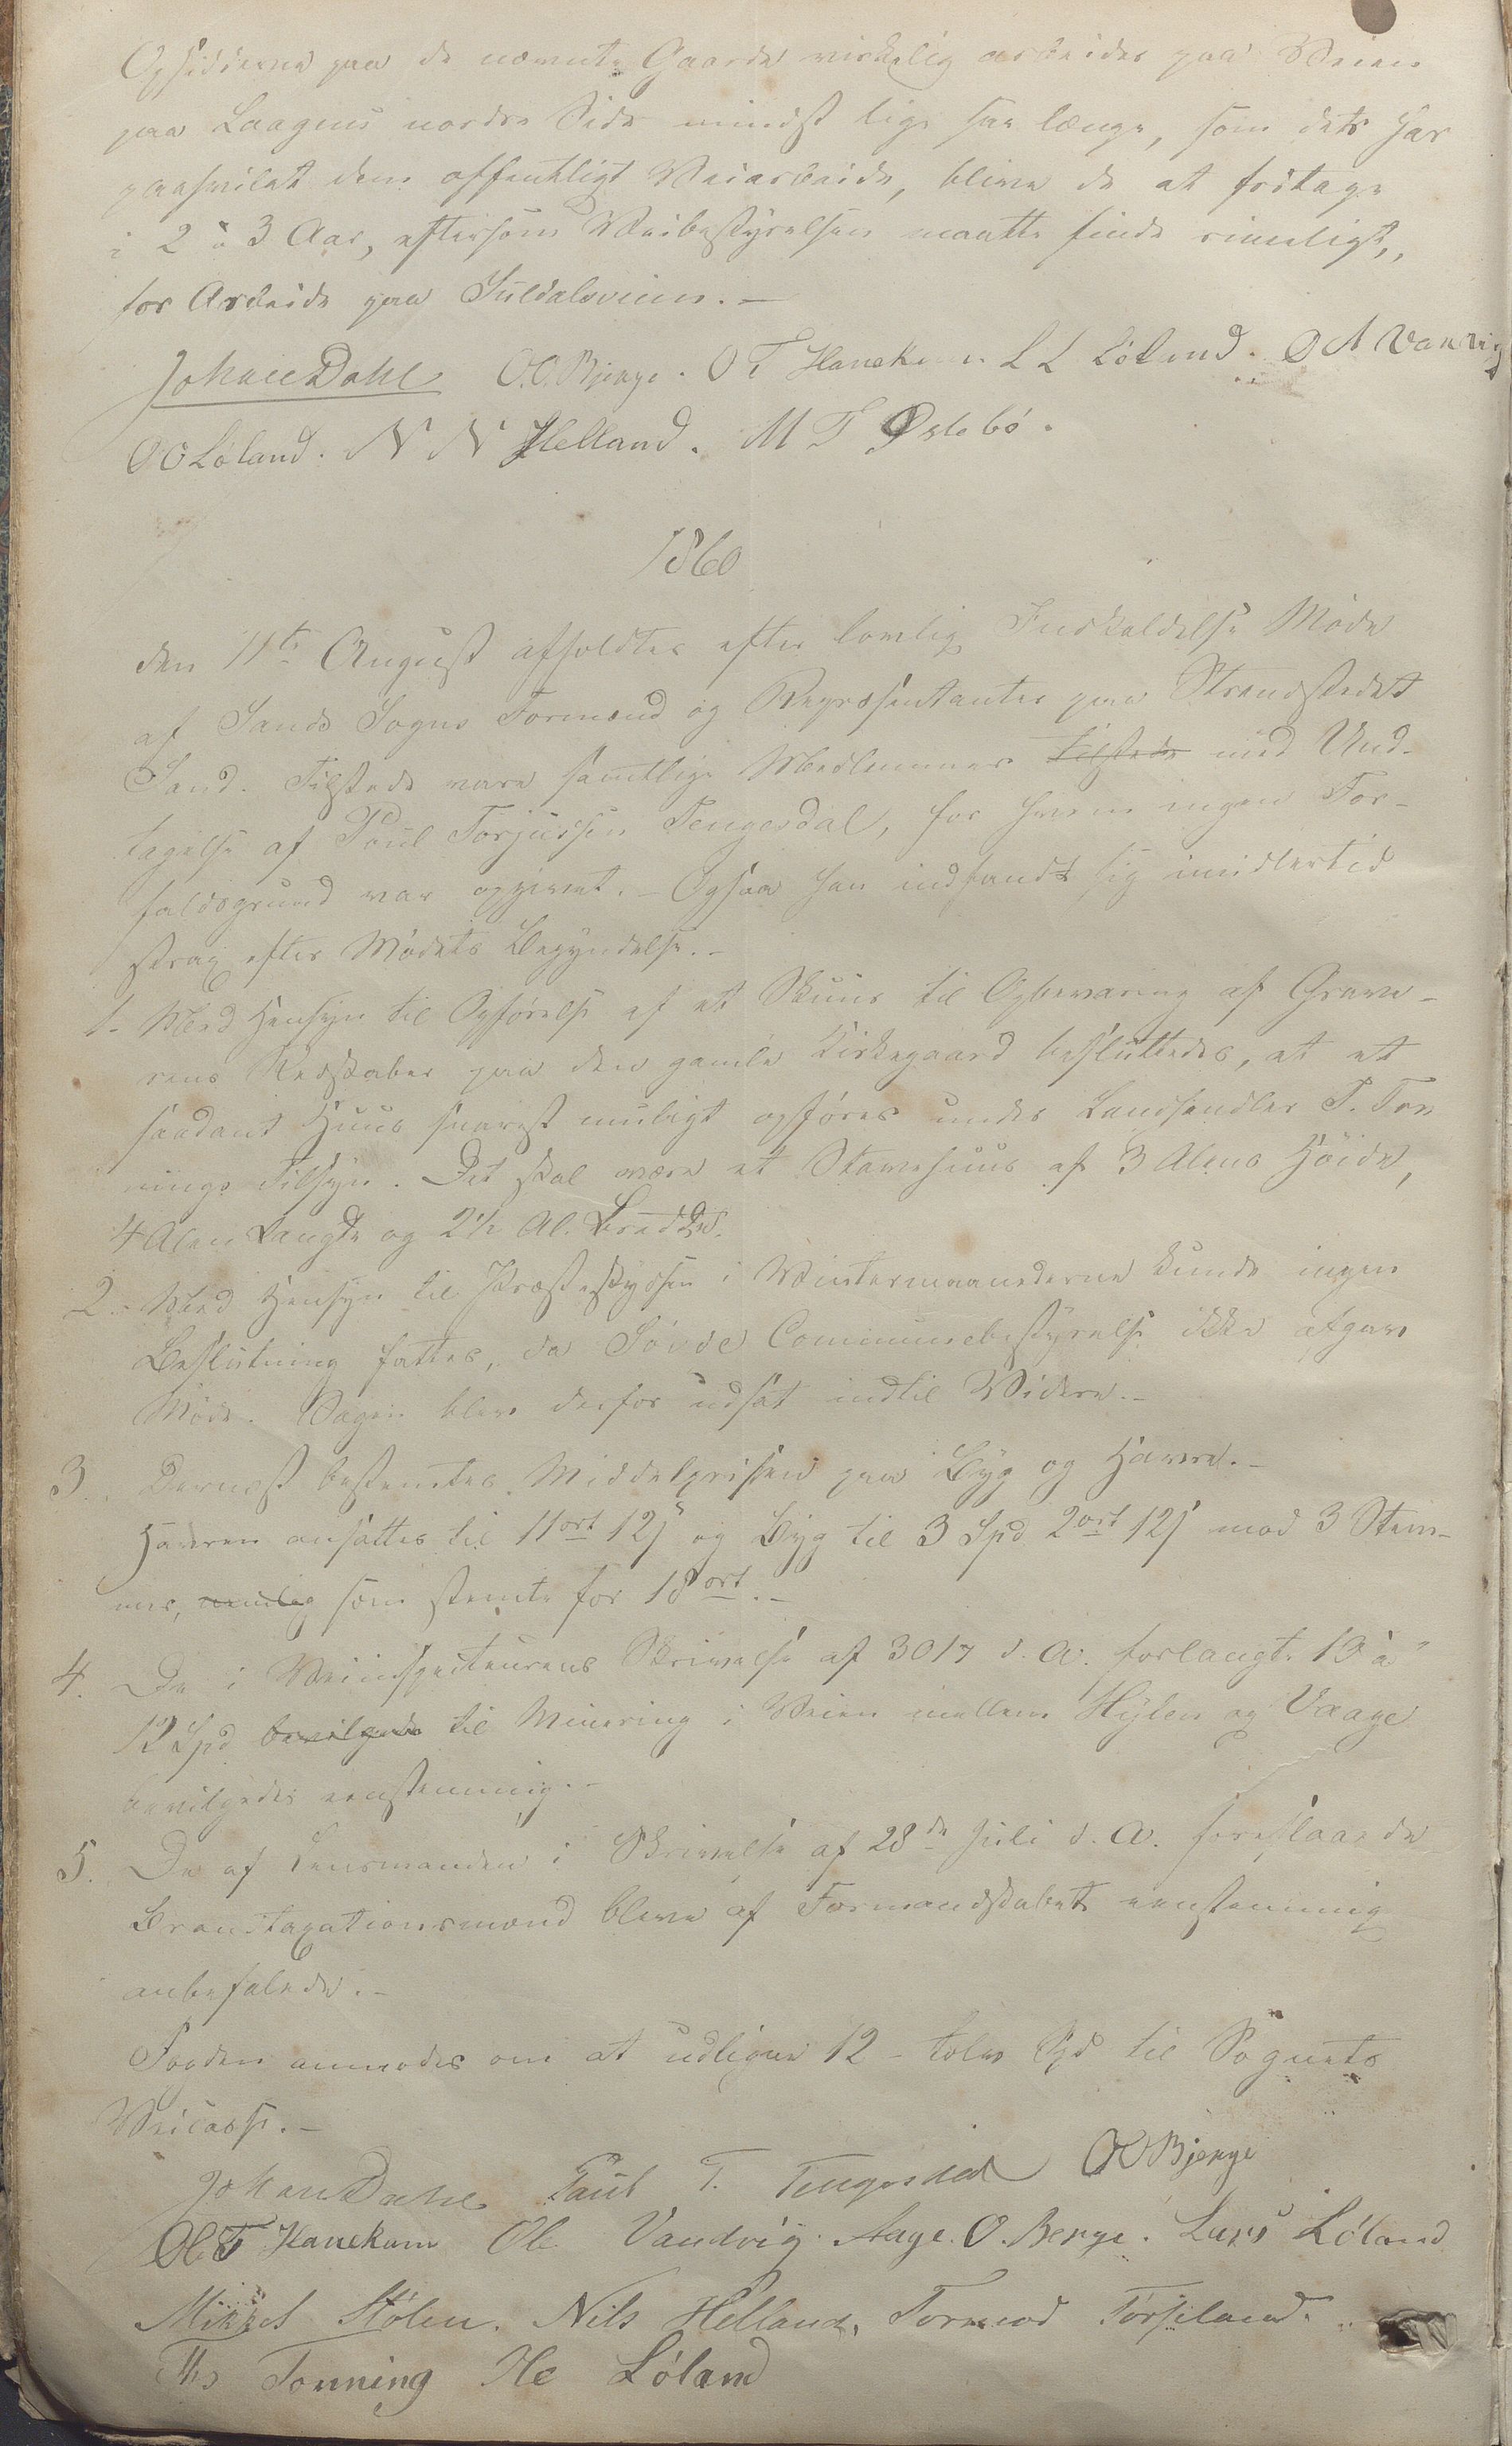 Opsidderne paa de nævnte Gaarde virkelig arbeider paa Veien
paa Laagens nordre Side mindst lige saa længe, som dets har
paahvilet dem offentligt Veiarbeide, blive de at fritage
i 2 à 3 Aar, eftersom Veibestyrelsen maatte finde rimeligt,
for Arbeide paa Suldalsveien. -
Johan Dahl O.O. Bjerge. O T Hanekam L L Löland. O A Vanvig
O O Löland. N N Helland. M T Østebö.
1860
den 11te August afholdtes efter lovlig Indkaldelse Möde
af Sands Sogns Formænd og Repræsentanter paa Strandstedet
Sand. Tilstede vare samtlige Medlemmer tilstede med Und-
tagelse af Poul Torjussen Tengesdal, for hvem ingen For-
faldsgrund var opgivet. - Ogsaa han indfandt sig imidlertid
strax efter Mödets Begyndelse. -
1. Med Hensyn til Opförelse af et Skuur til Opbevaring af Grave-
rens Redskaber paa den gamle Kirkegaard besluttedes, at et
saadant Huus snarest muligt opføres under Landhandler T. Ton
nings Tilsyn. Det skal være et Stavehuus af 3 Alens Höide,
4 Alen Længde og 2½ Al. Bredde.
2. Med Hensyn til Præsteskydsen i Vintermaanederne kunde ingen
Beslutning fattes, da Søvde Communebestyrelse ikke afgav
Möde. Sagen blev derfor udsat indtil Videre. -
3. Dernæst bestemtes Middelprisen paa Byg og Havre. -
Havren ansattes til 11 ort 12 s og Byg til 3 Spd 2 ort 12 s mod 3 Stem-
mer, nemlig som stemte for 18 ort. -
4. De i Veiinspecteurens Skrivelse af 30/7 d. A. forlangte 10 à
12 Spd bevilgede til Minering i Veien mellem Hylen og Vaage
bevilgedes eenstemmig. -
5. De af Lensmanden i Skrivelse af 28de Juli d. A. foreslaaede
Branntaxationsmænd bleve af Formandskabet eenstemmig
anbefalede. -
Fogden anmodes om at udligne 12 - tolv Spd til Sognets
Veicasse. -
Johan Dahl Paul T. Tengesdal O O Bjerge
Ole T Hanekam Ole Vandvig. Aage. O. Berge. Lars Löland
Mikkel Stølen. Nils Helland. Tormod Forsland.
Ths Tonning He Löland